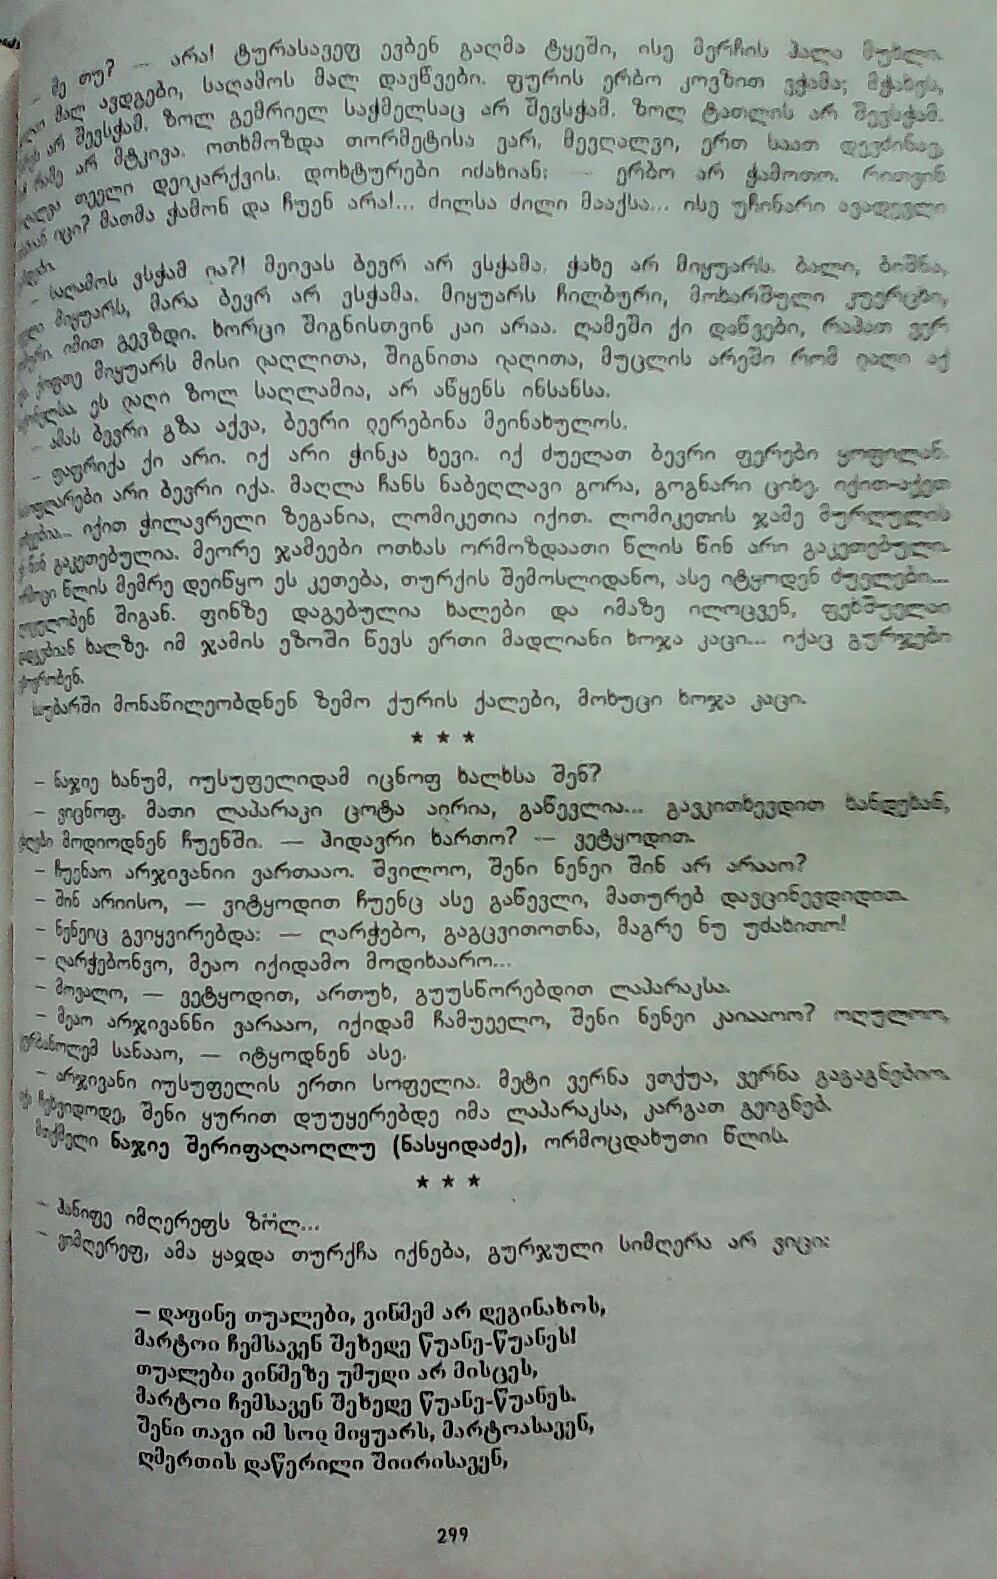 – მე თუ? — არა! ტურასავეფ ევბენ გაღმა ტყეში, ისე მერჩის ჰალა მუხლი.
მალ ავდგები, საღამოს მალ დაეწვები. ფურის ერბო კოვზით ვჭამა; მჭახეს,
არ შევსჭამ. ზოლ გემრიელ საჭმელსაც არ შევსჭამ. ზოლ ტათლის არ შევსჭამ.
რამე არ მტკივა. ოთხმოზდა თორმეტისა ვარ. მევღალვი, ერთ საათ დევძინავ,
თეელი დეიკარქვის. დოხტურები იძახიან: — ერბო არ ჭამოთო. რითვინ
იცი? მათმა ჭამონ და ჩუენ არა!... ძილსა ძილი მააქსა... ისე უჩინარი ავადეელი
– საღამოს ვსჭამ და?! მეივას ბევრ არ ვსჭამა. ჭახე არ მიყუარს. ბალი, ბიშნა,
მიყუარს, მარა ბევრ არ ვსჭამა. მიყუარს ჩილბური, მოხარშული კუერცხი,
იმით გევზდი. ხორცი შიგნისთვინ კაი არაა. ღამეში ქი დაწვები, რაჰათ ვერ
ქოფთე მიყუარს მისი ჲაღლითა, შიგნითა ჲაღითა, მუცლის არეში რომ ჲაღი აქ
ეს ჲაღი ზოლ საღლამია, არ აწყენს ინსანსა.
– ამას ბევრი გზა აქვა, ბევრი ჲერებინა მეინახულოს.
– ფაფრიქა ქი არი. იქ არი ჭინკა ხევი. იქ ძუელათ ბევრი ფერები ყოფილან.
არი ბევრი იქა. მაღლა ჩანს ნაბეღლავი გორა, გოგნარი ციხე. იქით-აქეთ
იქით ჭილავრელი ზეგანია, ლომიკეთია იქით. ლომიკეთის ჯამე მურღულის
წინ გაკეთებულია. მეორე ჯამეები ოთხას ორმოზდაათი წლის წინ არი გაკეთებული.
წლის მემრე დეიწყო ეს კეთება, თურქის შემოსლიდანო, ასე იტყოდენ ძუელები...
შიგან. ფინზე დაგებულია ხალები და იმაზე ილოცვენ, ფეხშუელაი
ხალზე. იმ ჯამის ეზოში წევს ერთი მადლიანი ხოჯა კაცი... იქაც გურჯები
ცხურობენ.
საუბარში მონაწილეობდნენ ზემო ქურის ქალები, მოხუცი ხოჯა კაცი.
★ ★ ★
– ნაჯიე ხანუმ, იუსუფელიდამ იცნოფ ხალხსა შენ?
– ვიცნოფ. მათი ლაპარაკი ცოტა აირია, გაწევლია... გავკითხევდით ხანდეხან,
მოდიოდნენ ჩუენში. — ჰიდავრი ხართო? — ვეტყოდით.
– ჩუენაო არჯივანიი ვართააო. შვილოო, შენი ნენეი შინ არ არააო?
– შინ არიისო, — ვიტყოდით ჩუენც ასე გაწევლი, მათურებ დავცინევდიდით.
– ნენეიც გვიყვირებდა: — ღარჭებო, გაგცვითოთნა, მაგრე ნუ უძახითო!
– ღარჭებონვო, მეაო იქიდამო მოდიხაარო...
– მოვალო, — ვეტყოდით, ართუხ, გუუსწორებდით ლაპარაკსა.
– მეაო არჯივანნი ვარააო, იქიდამ ჩამუეელო, შენი ნენეი კაიააოო? ოღულოო,
ყურბანოლემ სანააო, — იტყოდნენ ასე.
– არჯივანი იუსუფელის ერთი სოფელია. მეტი ვერნა ვთქუა, ვერნა გაგაგნებიო.
იქ ჩეხვიდოდე, შენი ყურით დუუყერებდე იმა ლაპარაკსა, კარგათ გეიგნებ.
მთქმელი ნაჯიე შერიფაღაოღლუ (ნასყიდაძე), ორმოცდახუთი წლის.
★ ★ ★
– ჰანიფე იმღერეფს ზოლ...
– ვიმღერეფ, ამა ყაჲდა თურქჩა იქნება, გურჯული სიმღერა არ ვიცი:
– დაფინე თუალები, ვინმემ არ დეგინახოს,
მარტოი ჩემსავენ შეხედე წუანე-წუანეს!
თუალები ვინმეზე უმუდი არ მისცეს,
მარტოი ჩემსავენ შეხედე წუანე-წუანეს.
შენი თავი იმ სოჲ მიყუარს, მარტოასავენ,
ღმერთის დაწერილი შიირისავენ,
299